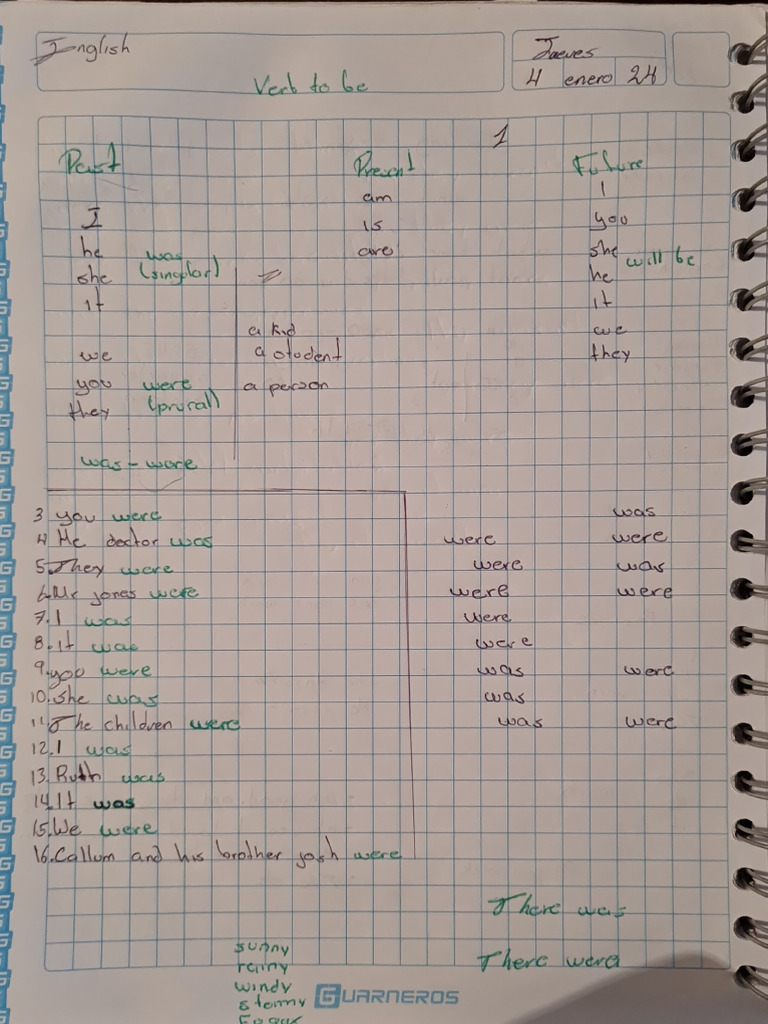 English
Jueves
Verb to be
4 enero 24
1
Past Present Future
am I
I is you
he was are she will be
she (singular) he
it it
a kid we
we a student they
you were a person
they (prural)
was - were
3 you were was
4 He doctor was were were
5. They were were was
6. Mr jones were were were
7. I was were
8. it was were
9. you were was were
10. She was was
11 The children were was were
12. I was
13. Ruth was
14. It was
15. We were
16. Callum and his brother josh were
There was
sunny
There were
rainy
windy
stormy
GUARNEROS